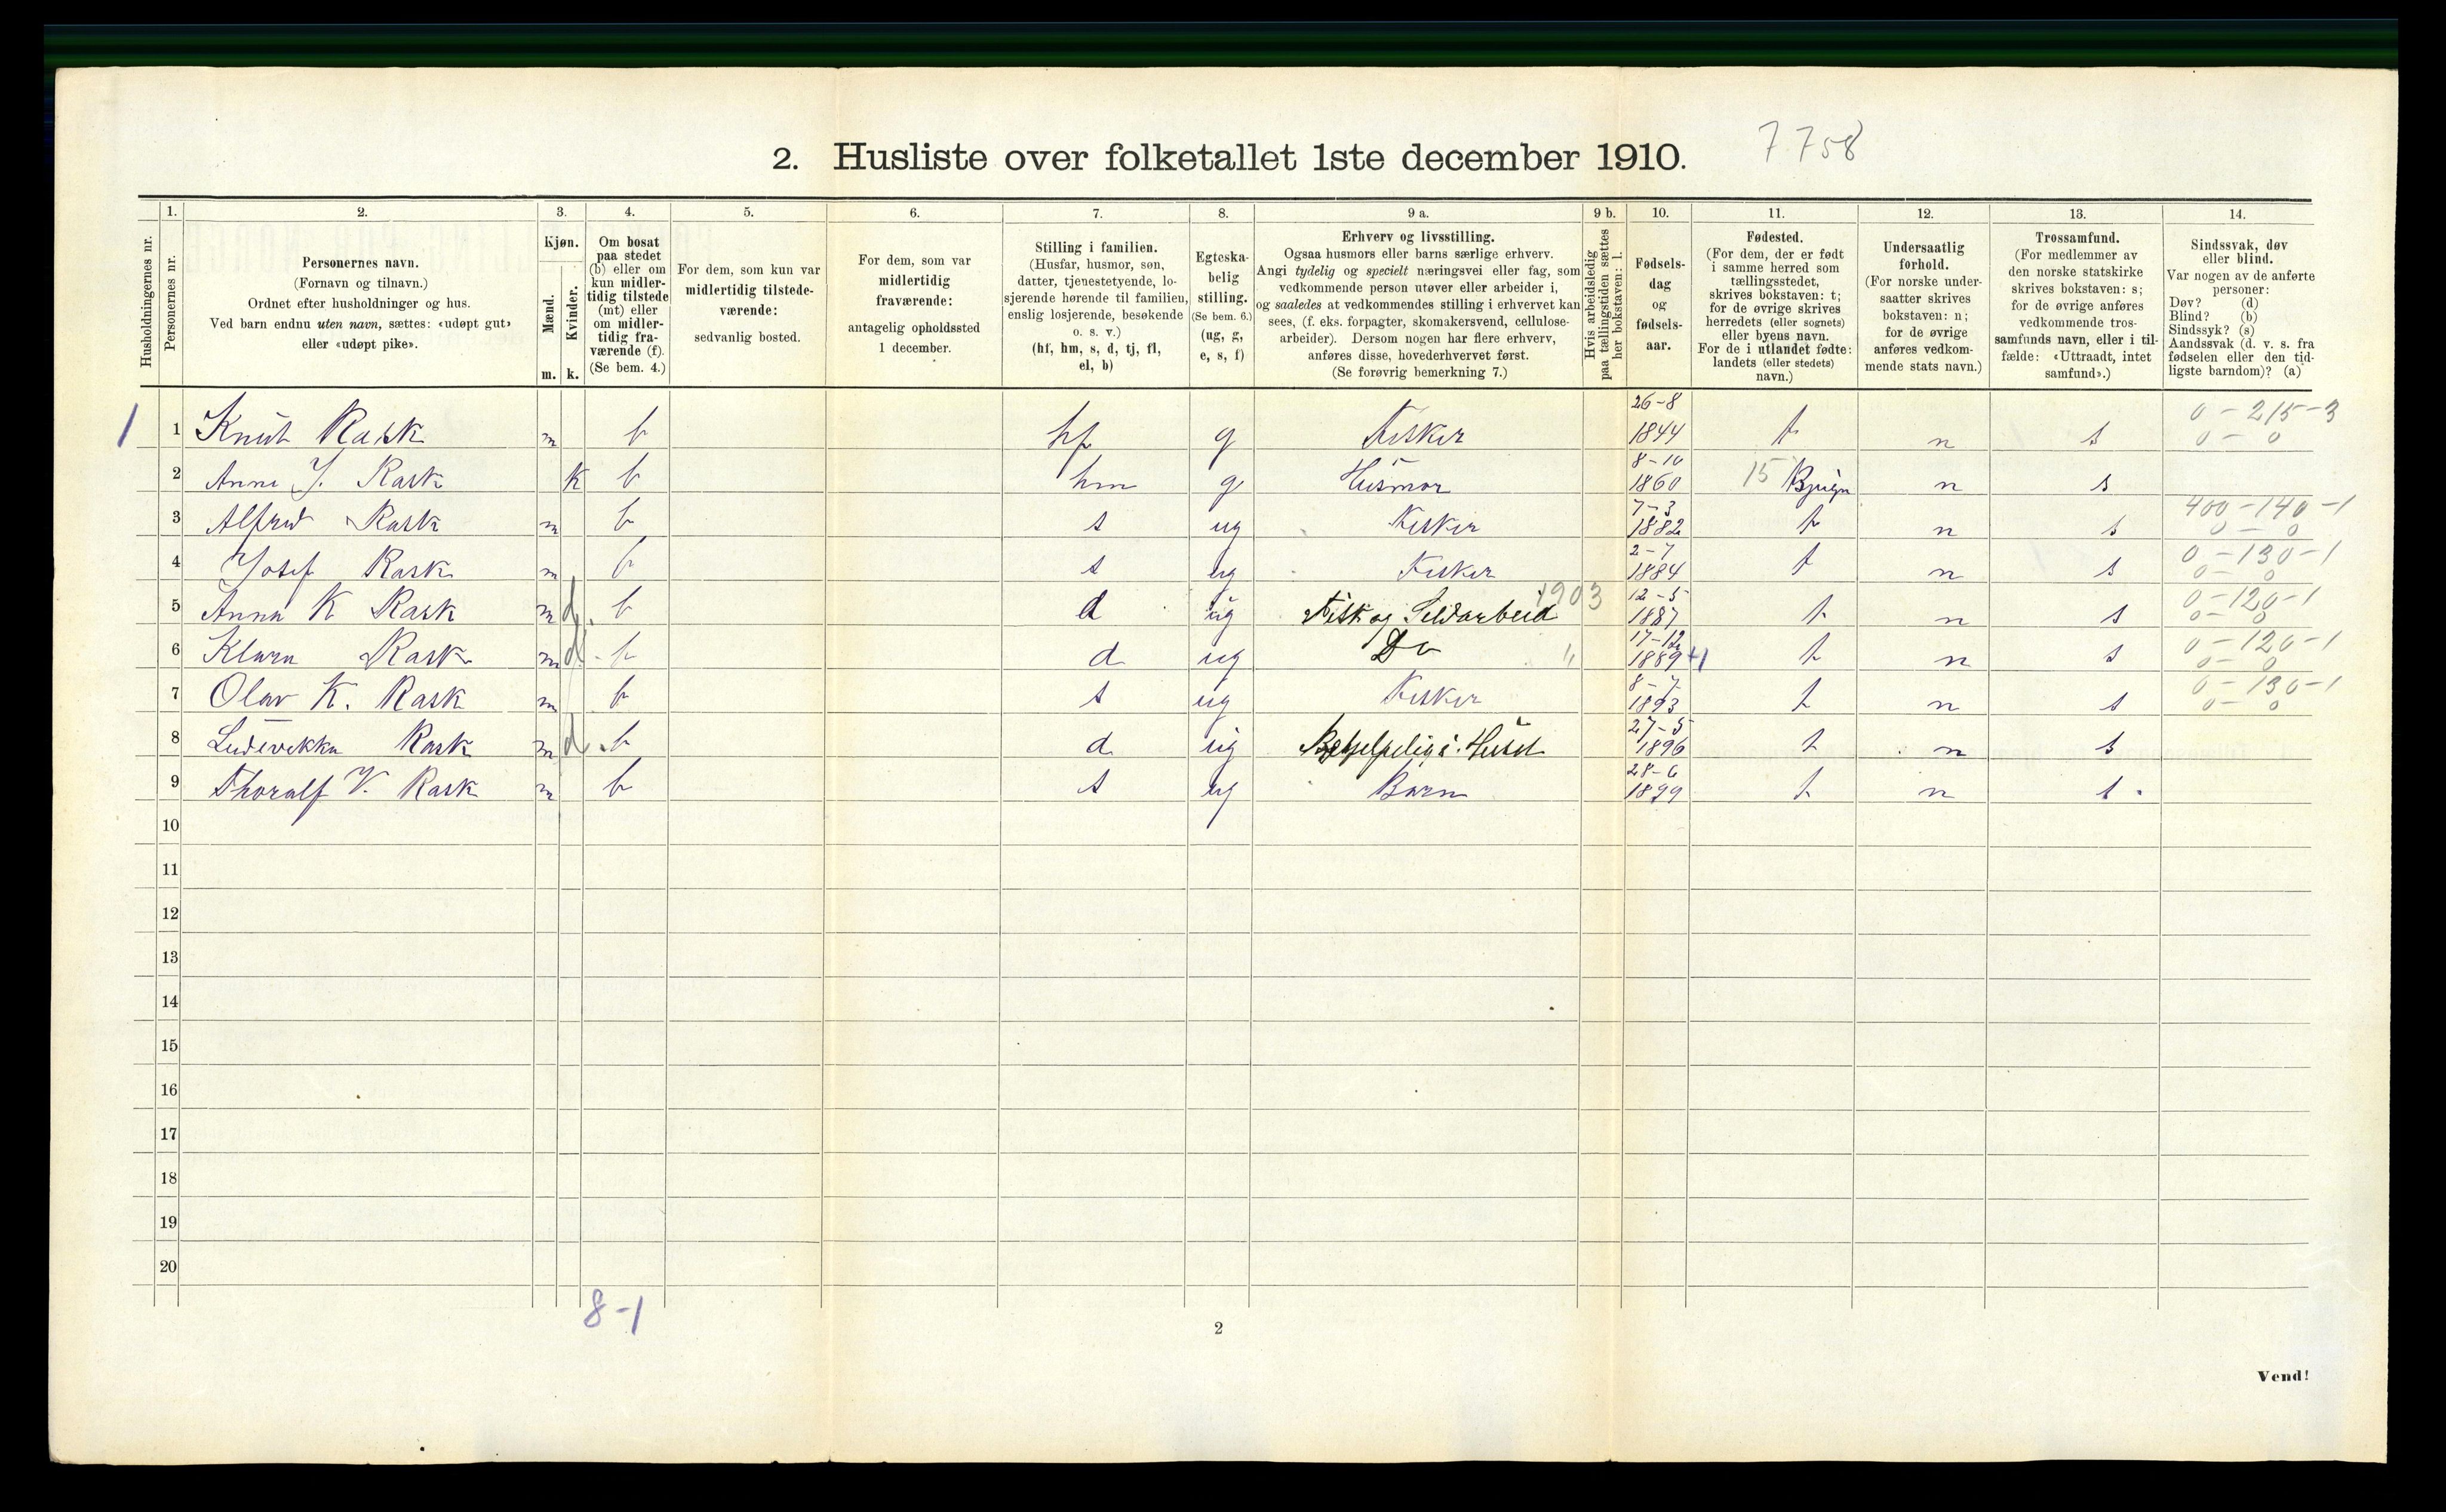 2. Husliste over folketallet 1ste december 1910.
7758
Husholdningernes nr.
1.
Personernes nr.
2.
Personernes navn.
(Fornavn og tilnavn.)
Ordnet efter husholdninger og hus.
Ved barn endnu uten navn, sættes: «udøpt gut»
eller «udøpt pike».
3.
Kjøn.
Mænd.
Kvinder.
m. k.
4.
Om bosat
paa stedet
(b) eller om
kun midler-
tidig tilstede
(mt) eller
om midler-
tidig fra-
værende (f).
(Se bem. 4.)
5.
For dem, som kun var
midlertidig tilstede-
værende:
sedvanlig bosted.
6.
For dem, som var
midlertidig
fraværende:
antagelig opholdssted
1 december.
7.
Stilling i familien.
(Husfar, husmor, søn,
datter, tjenestetyende, lo-
sjerende hørende til familien,
enslig losjerende, besøkende
o. s. v.)
(hf, hm, s, d, tj, fl,
el, b)
8.
Egteska-
belig
stilling.
(Se bem. 6.)
(ug, g,
e, s, f)
9 a.
Erhverv og livsstilling.
Ogsaa husmors eller barns særlige erhverv.
Angi tydelig og specielt næringsvei eller fag, som
vedkommende person utøver eller arbeider i,
og saaledes at vedkommendes stilling i erhvervet kan
sees, (f. eks. forpagter, skomakersvend, cellulose-
arbeider). Dersom nogen har flere erhverv,
anføres disse, hovederhvervet først.
(Se forøvrig bemerkning 7.)
9 b.
Hvis arbeidsledig
paa tællingstiden sættes
her bokstaven: l.
10.
Fødsels-
dag
og
fødsels-
aar.
11.
Fødested.
(For dem, der er født
i samme herred som
tællingsstedet,
skrives bokstaven: t;
for de øvrige skrives
herredets (eller sognets)
eller byens navn.
For de i utlandet fødte:
landets (eller stedets)
navn.)
12.
Undersaatlig
forhold.
(For norske under-
saatter skrives
bokstaven: n;
for de øvrige
anføres vedkom-
mende stats navn.)
13.
Trossamfund.
(For medlemmer av
den norske statskirke
skrives bokstaven: s;
for de øvrige anføres
vedkommende tros-
samfunds navn, eller i til-
fælde: «Uttraadt, intet
samfund».)
14.
Sindssvak, døv
eller blind.
Var nogen av de anførte
personer:
Døv? (d)
Blind? (b)
Sindssyk? (s)
Aandssvak (d. v. s. fra
fødselen eller den tid-
ligste barndom)? (a)
1 1 Knut Rask m b hf g Fisker 26-8 1844 t n s 0-215-3 0-0
2 Anne J. Rask k b hm g Husmor 8-10 1860 15 Bjugn n s
3 Alfred Rask m b s ug Fisker 7-3 1882 t n s 400-140-1 0-0
4 Josef Rask m b s ug Fisker 2-7 1884 t n s 0-130-1 0-0
5 Anna K Rask m d. b d ug Fisk og Sildarbeid 1903 12-5 1887 t n s 0-120-1 0-0
6 Klara Rask m d b d ug Do " 17-12 1889 +1 t n s 0-120-1 0-0
7 Olav K. Rask m b s ug Fisker 8-7 1893 t n s 0-130-1 0-0
8 Ludevikka Rask m d. b d ug Behjelpelig i Huset 27-5 1896 t n s
9 Thoralf V. Rask m b s ug Barn 28-6 1899 t n s
10
11
12
13
14
15
16
17
18
19
20
8-1
2
Vend!